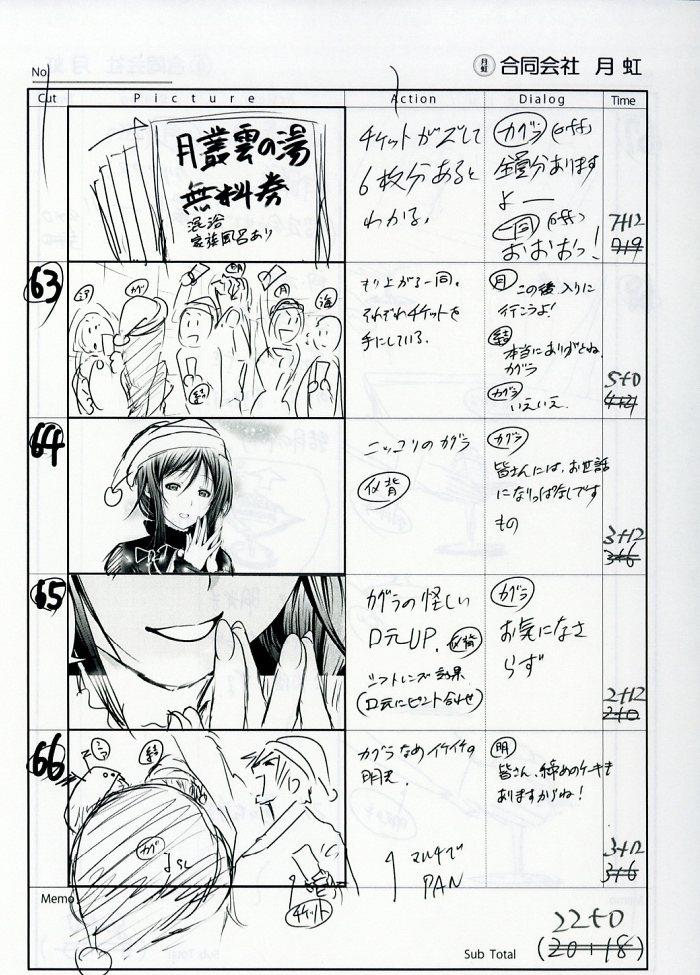 No.
月虹 合同会社 月虹
Cut Picture Action Dialog Time
月叢雲の湯
無料券
混浴
家族風呂あり
チケットがズレて
6枚分あると
わかる。
カグラ (off)
全員分あります
よー
一同 (off)
おおおっ!
7+12
63
カグ
結
月
海
もり上がる一同。
それぞれチケットを
手にしている。
月 この後入りに
行こうよ!
結
本当にありがとね
カグラ
カグラ
いえいえ。
5+0
64
ニッコリのカグラ
仮背
カグラ
皆さんには、お世話
になりっぱなしです
もの
3+12
3+6
65
カグラの怪しい
口元UP. 仮背
シフトレンズ効果
(口元にピント合わせ)
カグラ
お気になさ
らず
2+12
2+0
66
結
カグ
チケット
カグラなめイケイケの
明光.
マルチで
PAN
明
皆さん、締めのケーキも
ありますからね!
3+12
3+6
Memo
Sub Total
22+0
(20+18)